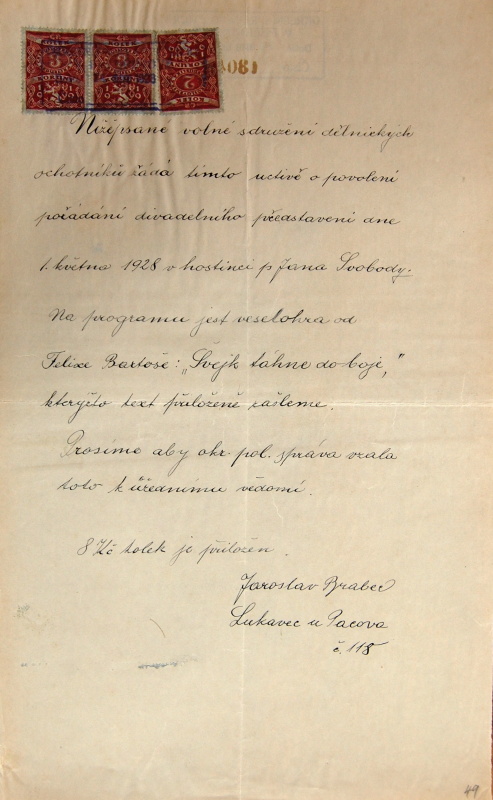 081
Nížepsané volné sdružení dělnických
ochotníků žádá tímto uctivě o povolení
pořádání divadelního představení dne
1. května 1928 v hostinci p Jana Svobody.
Na programu jest veselohra od
Felixe Bartoše: „Švejk táhne do boje,"
kterýžto text přiloženě zašleme.
Prosíme aby okr. pol. správa vzala
toto k úřednímu vědomí.
8 Kč kolek je přiložen.
Jaroslav Brabec
Lukavec u Pacova
č. 118
49